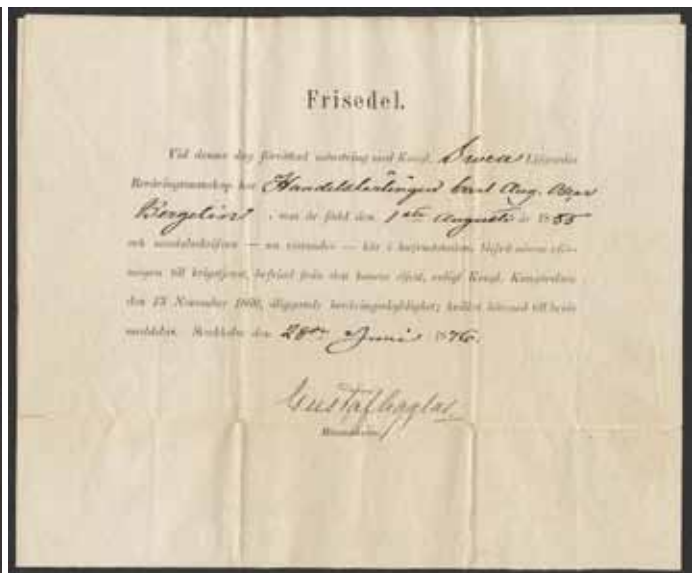 Frisedel.
Vid denna dag förrättad mönstring med Kongl. Svea Lifgardes
Beväringsmanskap har Handelslärlingen Carl Aug. Oscar
Bergelin, som är född den 1ste Augusti år 1855
och mantalsskrifven — här i hufvudstaden, blifvit
till krigstjenst, befriad från den honom enligt Kongl. Kungörelsen
den 13 November 1860, åliggande beväringsskyldighet; hvilket härmed till bevis
meddelas. Stockholm den 28de Juni 1876.
Gustaf